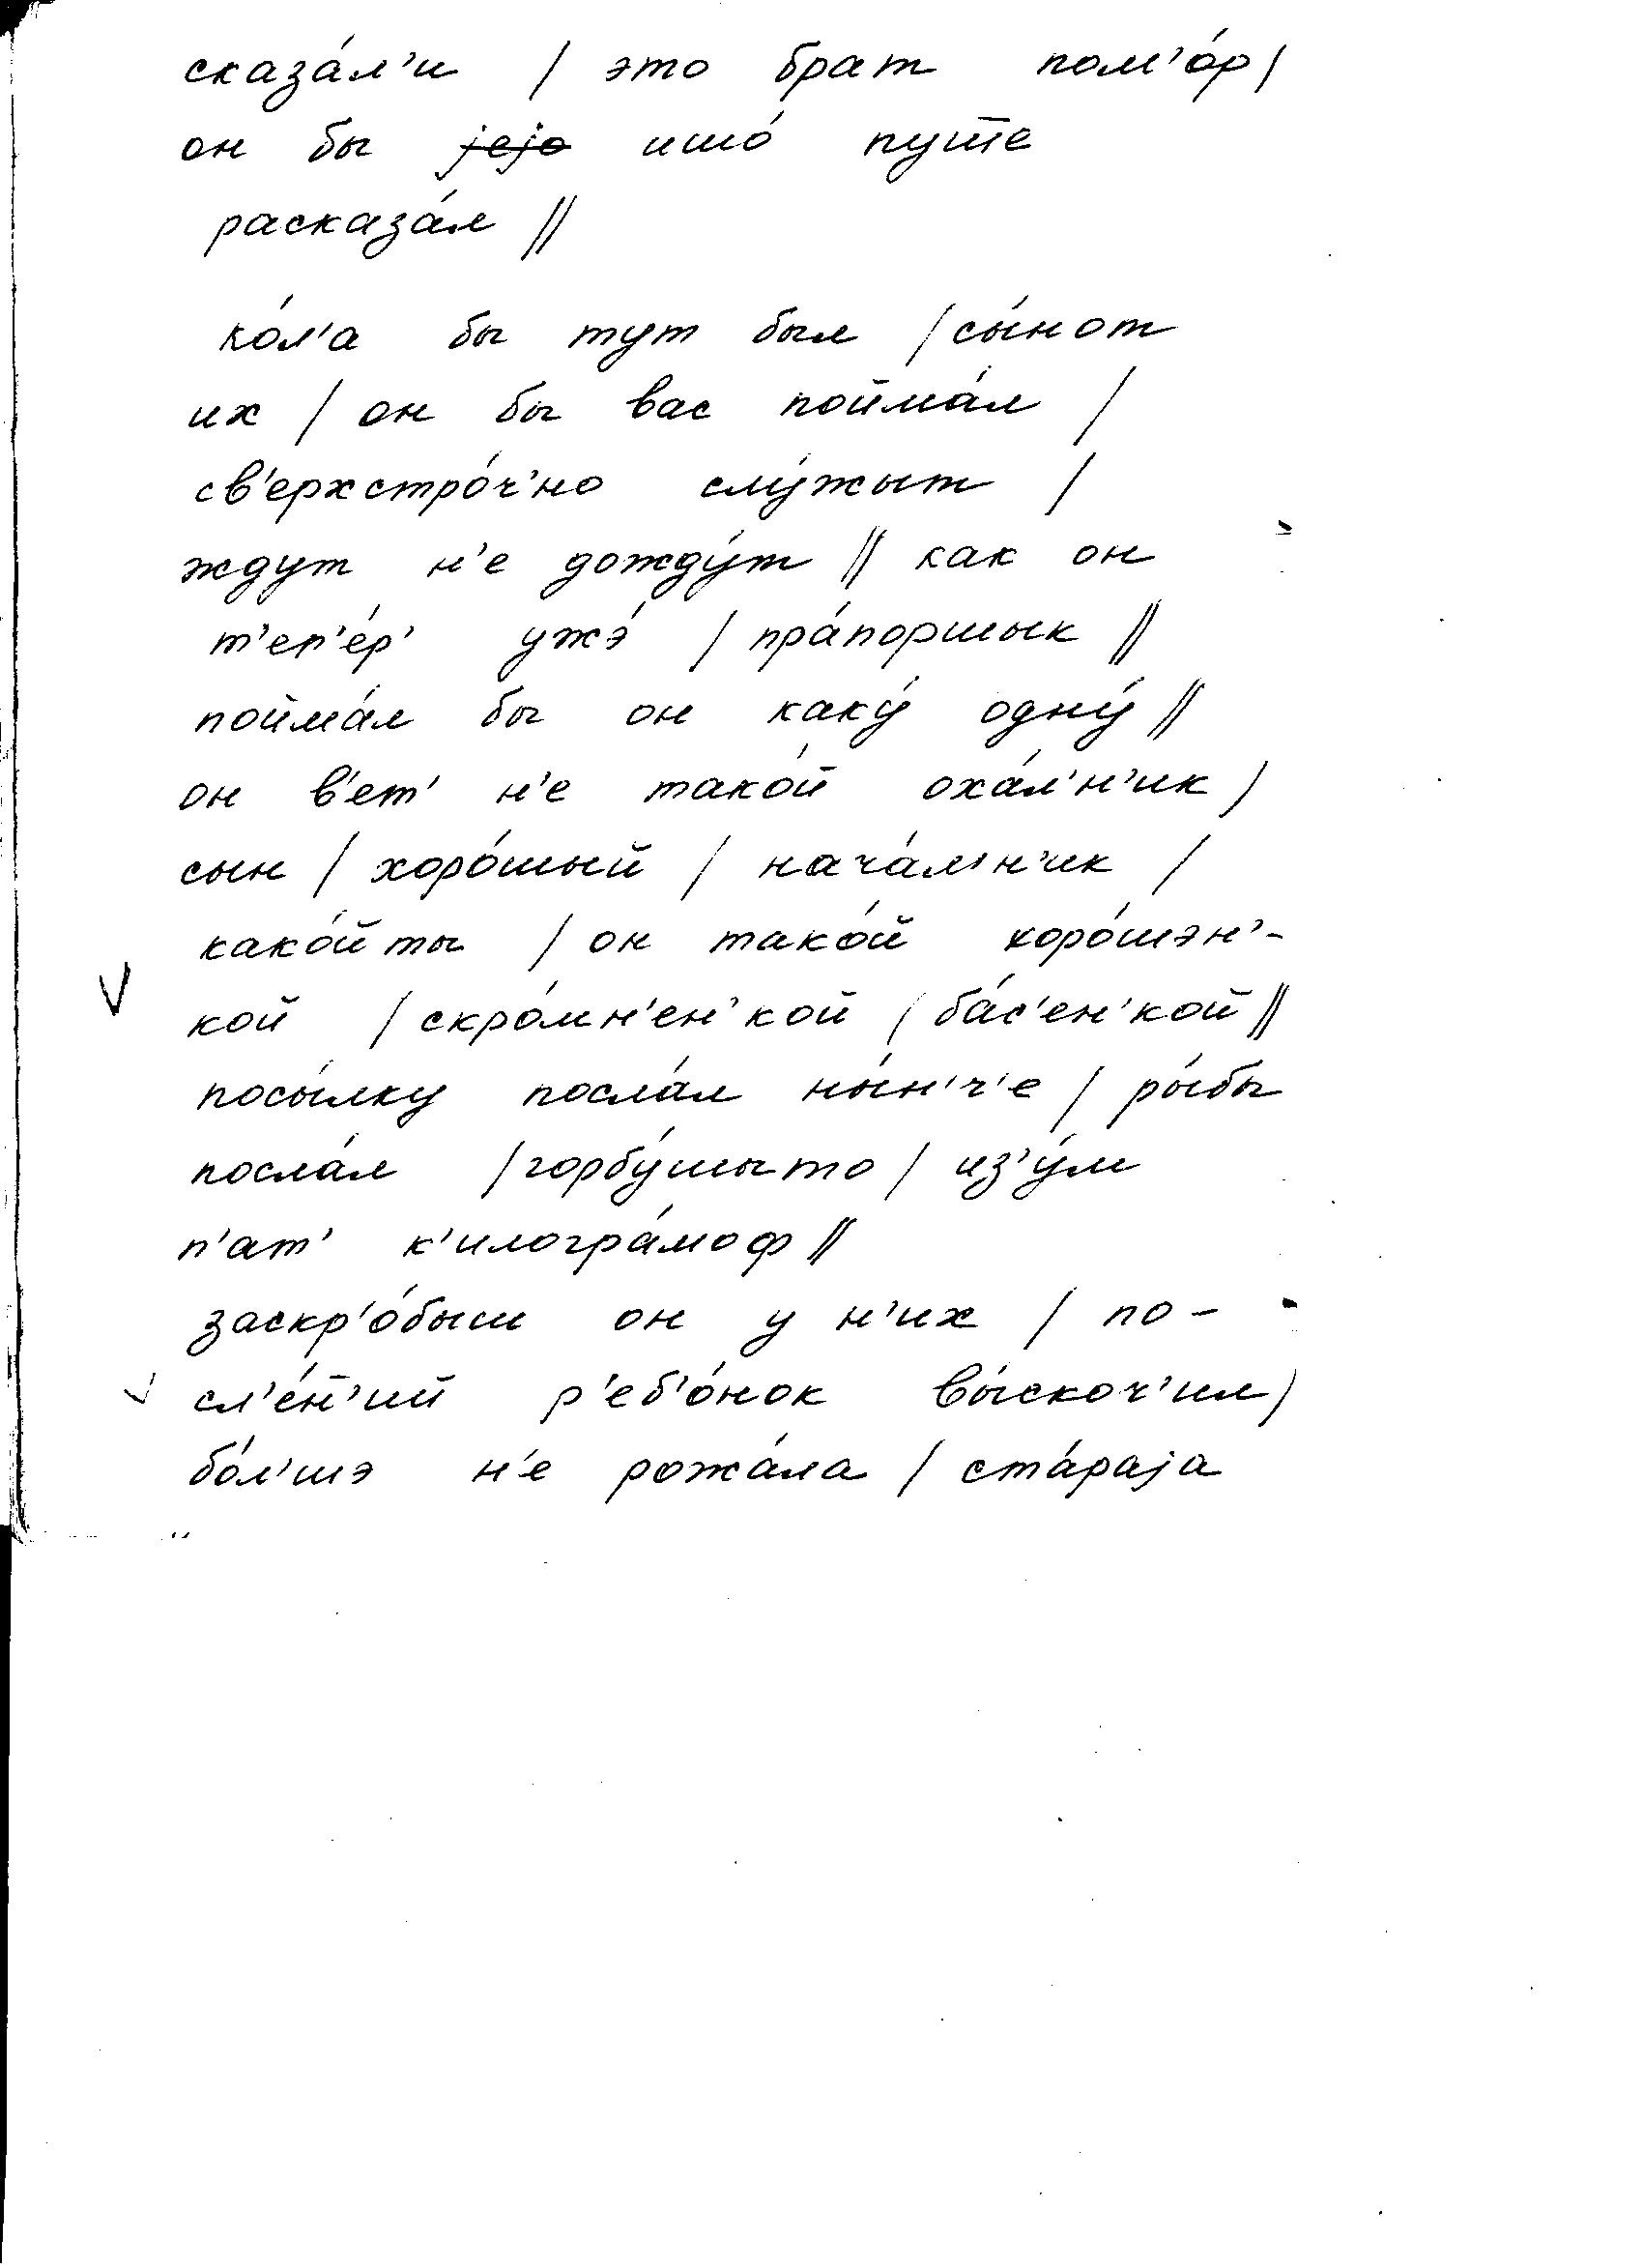 сказа́л'и / это брат пом'о́р /
он бы ~~jejo~~ ишо́ пут̅е
расказа́л //
ко́л'а бы тут был / сы́н от
их / он бы вас пойма́л /
св'ерхстро́ч'но слу́жыт /
ждут н'е дожду́т // как он
т'еп'е́р' ужэ́ / пра́поршык //
пойма́л бы он каку́ одну́ //
он в'ет' н'е тако́й оха́л'н'ик /
сын / хоро́шый / нача́л'н'ик /
како́й ты / он тако́й хоро́шэн'-
кой / скро́мн'ен'кой / ба́с'ен'кой //
посы́лку посла́л ны́н'ч'е / ры́бы
посла́л / горбу́шыто / из'у́м
п'ат' к'илогра́моф //
заскр'о́быш он у н'их / по-
сл'е́н̅'ий р'еб'о́нок вы́скоч'ил /
бо́л'шэ н'е рожа́ла / ста́раjа